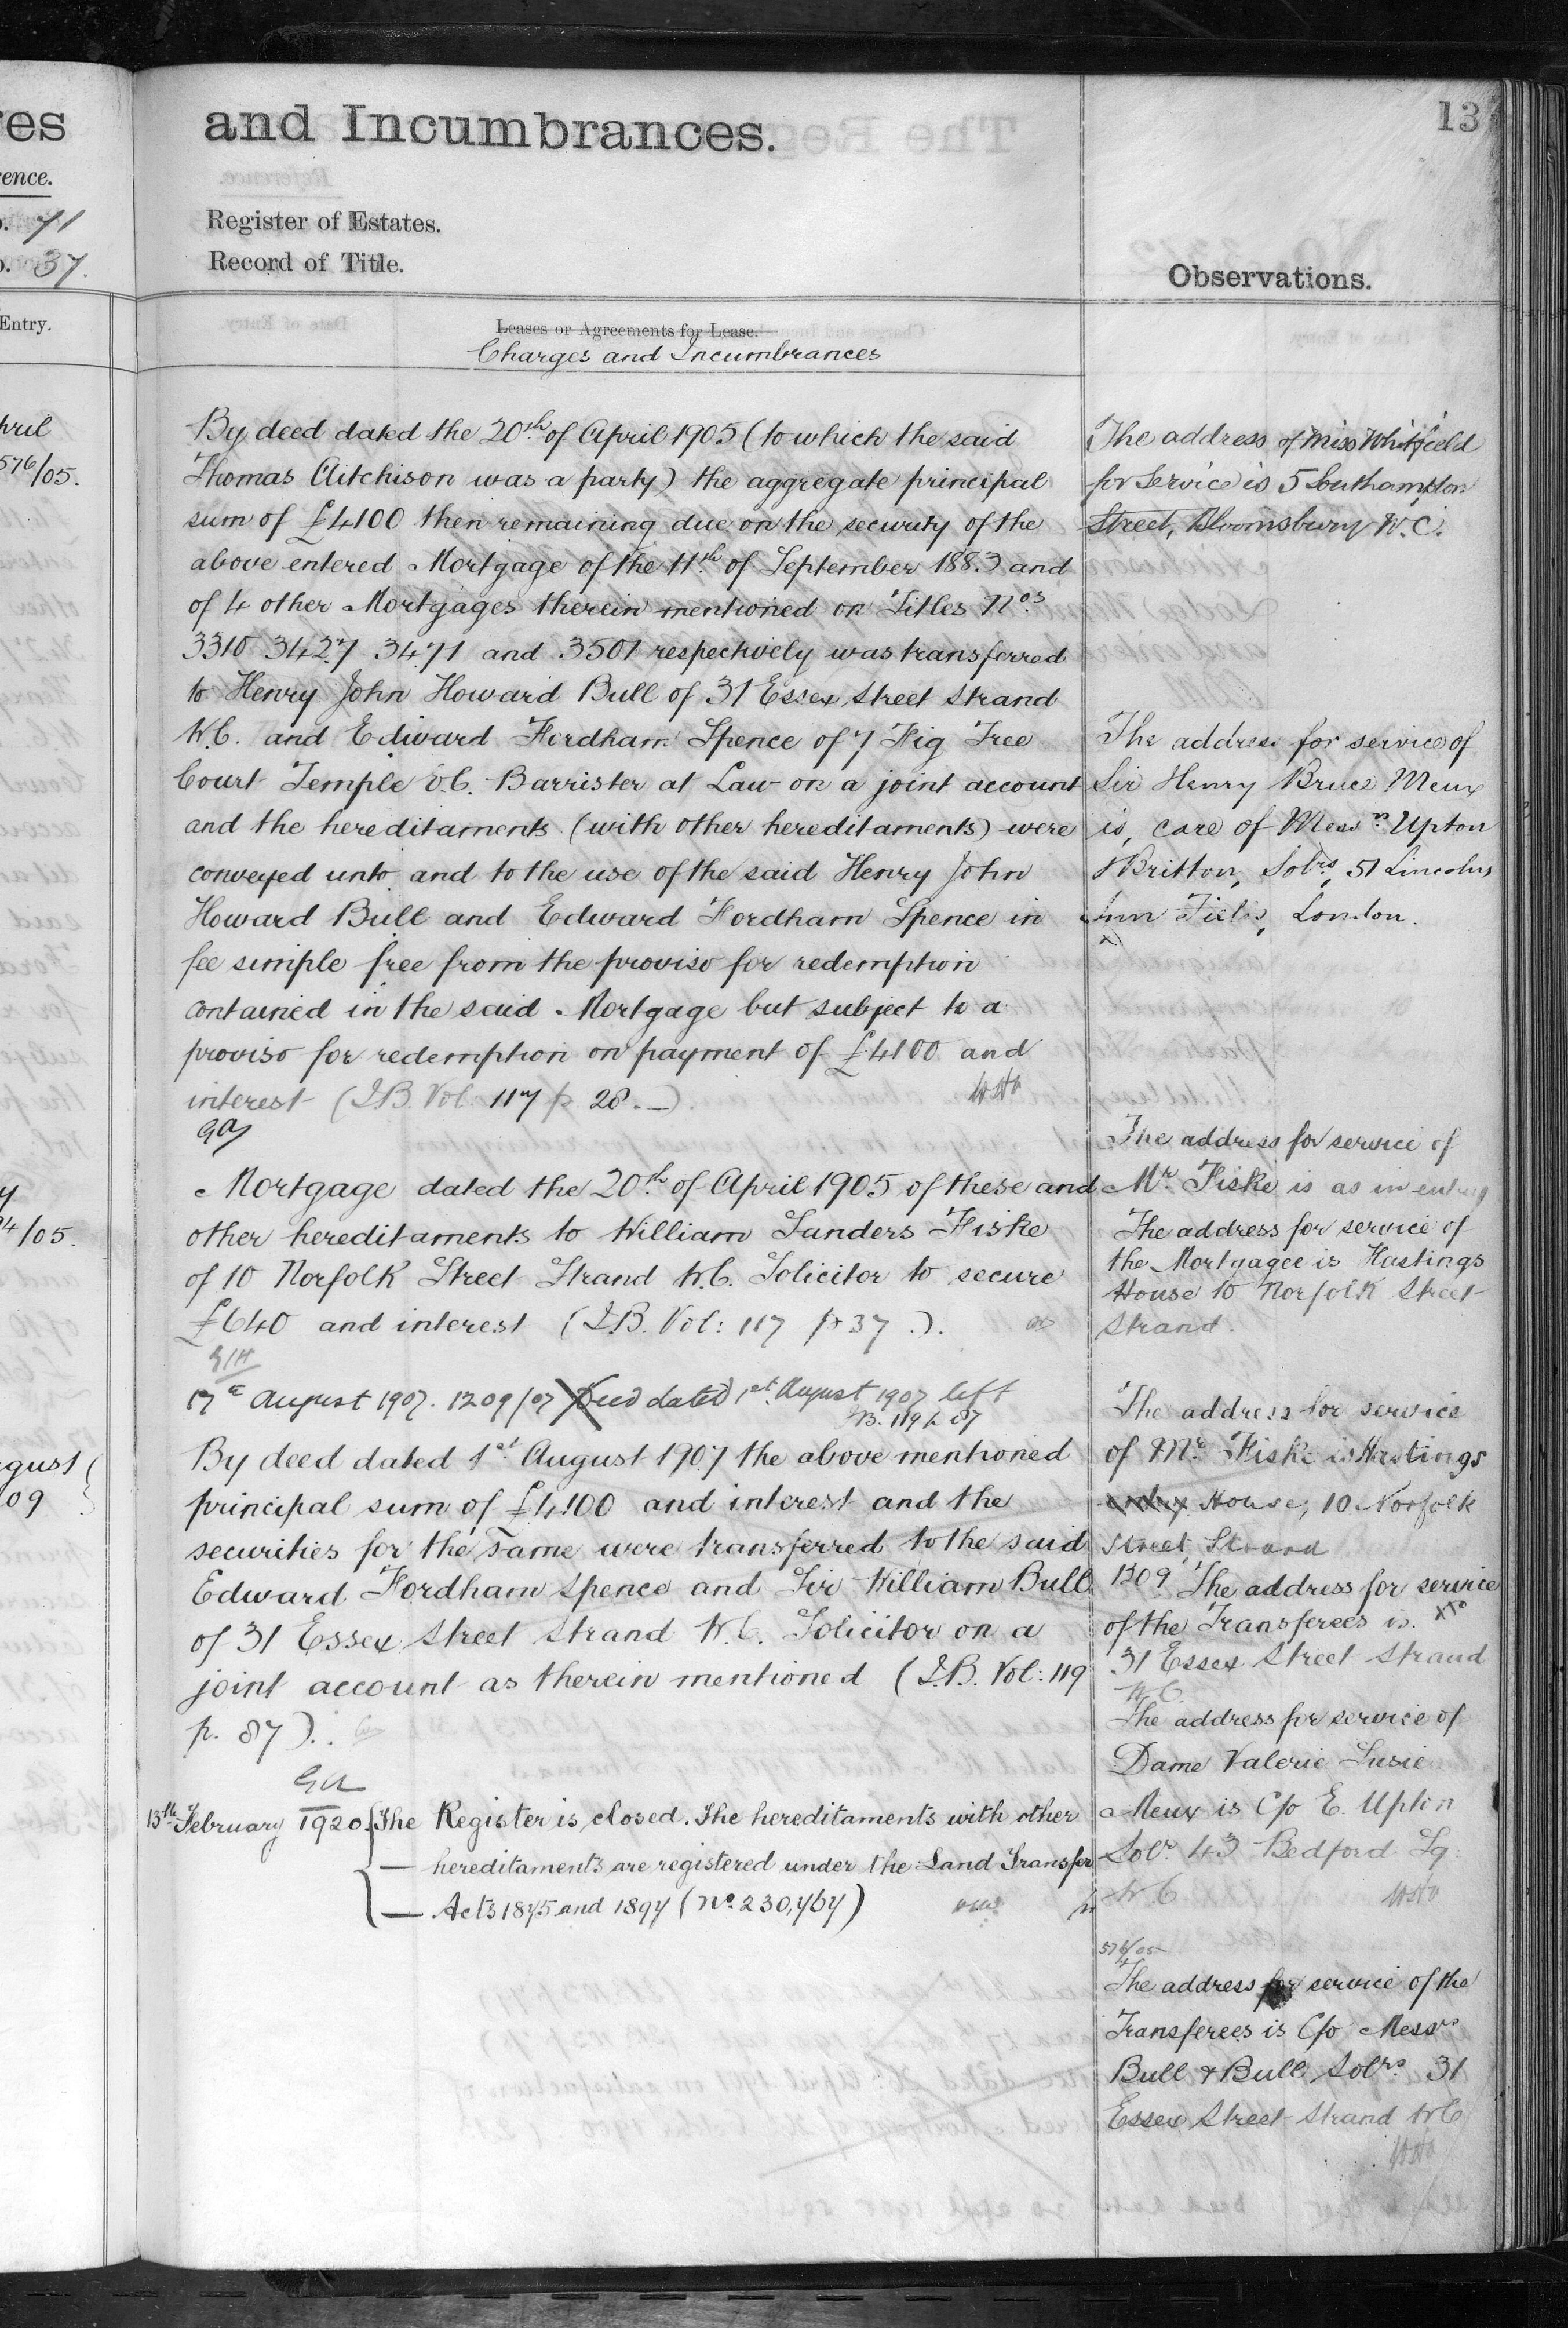 es
and Incumbrances.
13
ence.
71
Register of Estates.
37.
Record of Title.
Observations.
Entry.
Leases or Agreements for Lease.
Charges and Incumbrances
By deed dated the 20th of April 1905 (to which the said
Thomas Aitchison was a party) the aggregate principal
sum of £4100 then remaining due on the security of the
above entered Mortgage of the 11th of September 1883 and
of 4 other Mortgages therein mentioned on Titles Nos
3310 3427 3471 and 3501 respectively was transferred
to Henry John Howard Bull of 31 Essex Street Strand
W.C. and Edward Fordham Spence of 7 Fig Tree
Court Temple E.C. Barrister at Law on a joint account
and the hereditaments (with other hereditaments) were
conveyed unto and to the use of the said Henry John
Howard Bull and Edward Fordham Spence in
fee simple free from the proviso for redemption
contained in the said Mortgage but subject to a
proviso for redemption on payment of £4100 and
interest (I.B. Vol 117 p 28.—)
Mortgage dated the 20th of April 1905 of these and
other hereditaments to William Sanders Fiske
of 10 Norfolk Street Strand W.C. Solicitor to secure
£640 and interest (I.B. Vol: 117 p 37.).
17th August 1907. 1209/07 Deed dated 1st August 1907 left
I.B. 119 p 87
By deed dated 1st August 1907 the above mentioned
principal sum of £4100 and interest and the
securities for the same were transferred to the said
Edward Fordham Spence and Sir William Bull
of 31 Essex Street Strand W.C. Solicitor on a
joint account as therein mentioned (I.B. Vol: 119
p. 87).
13th February 1920. The Register is closed. The hereditaments with other
— hereditaments are registered under the Land Transfer
— Acts 1875 and 1897 (No. 230,767)
pril
576/05.
4/05.
gust
09
The address of Miss Whitfield
for Service is 5 Southampton
Street, Bloomsbury W.C.
The address for service of
Sir Henry Bruce Meux
is, care of Messrs Upton
& Britton, Solrs, 51 Lincolns
Inn Fields, London.
The address for service of
Mr. Fiske is as in entry
The address for service of
the Mortgagee is Hastings
House 10 Norfolk Street
Strand.
The address for service
of Mr. Fiske is Hastings
House, 10 Norfolk
Street, Strand
1209 The address for service
of the Transferees is
31 Essex Street Strand
W.C.
The address for service of
Dame Valerie Susie
Meux is C/o E. Upton
Solr 43 Bedford Sq.
W.C.
576/05
The address for service of the
Transferees is C/o Messrs
Bull & Bull, Solrs. 31
Essex Street Strand W.C.